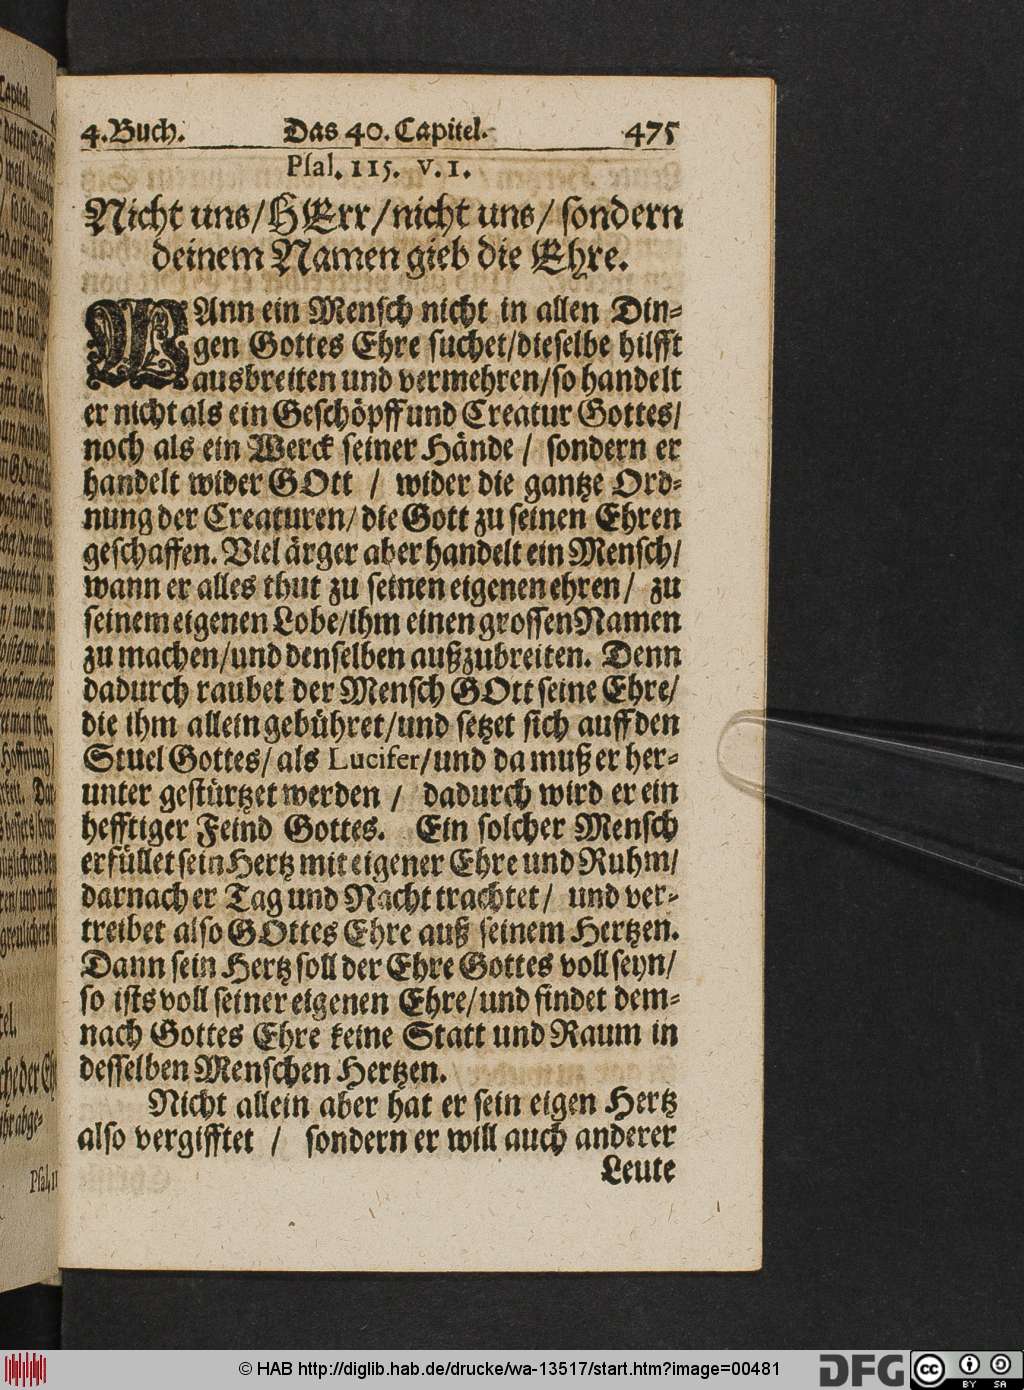 4. Buch. Das 40. Capitel. 475
Psal. 115. v. 1.
Nicht uns/ HErr/ nicht uns/ sondern
deinem Namen gieb die Ehre.
WAnn ein Mensch nicht in allen Din-
gen Gottes Ehre suchet/ dieselbe hilfft
ausbreiten und vermehren/ so handelt
er nicht als ein Geschöpff und Creatur Gottes/
noch als ein Werck seiner Hände / sondern er
handelt wider GOtt / wider die gantze Ord-
nung der Creaturen/ die Gott zu seinen Ehren
geschaffen. Viel ärger aber handelt ein Mensch/
wann er alles thut zu seinen eigenen ehren/ zu
seinem eigenen Lobe/ ihm einen grossen Namen
zu machen/ und denselben außzubreiten. Denn
dadurch raubet der Mensch GOtt seine Ehre/
die ihm allein gebühret/ und setzet sich auff den
Stuel Gottes/ als Lucifer/ und da muß er her-
unter gestürtzet werden / dadurch wird er ein
hefftiger Feind Gottes. Ein solcher Mensch
erfüllet sein Hertz mit eigener Ehre und Ruhm/
darnach er Tag und Nacht trachtet/ und ver-
treibet also GOttes Ehre auß seinem Hertzen.
Dann sein Hertz soll der Ehre Gottes voll seyn/
so ists voll seiner eigenen Ehre/ und findet dem-
nach Gottes Ehre keine Statt und Raum in
desselben Menschen Hertzen.
Nicht allein aber hat er sein eigen Hertz
also vergifftet / sondern er will auch anderer
Leute
© HAB http://diglib.hab.de/drucke/wa-13517/start.htm?image=00481
DFG
cc BY SA